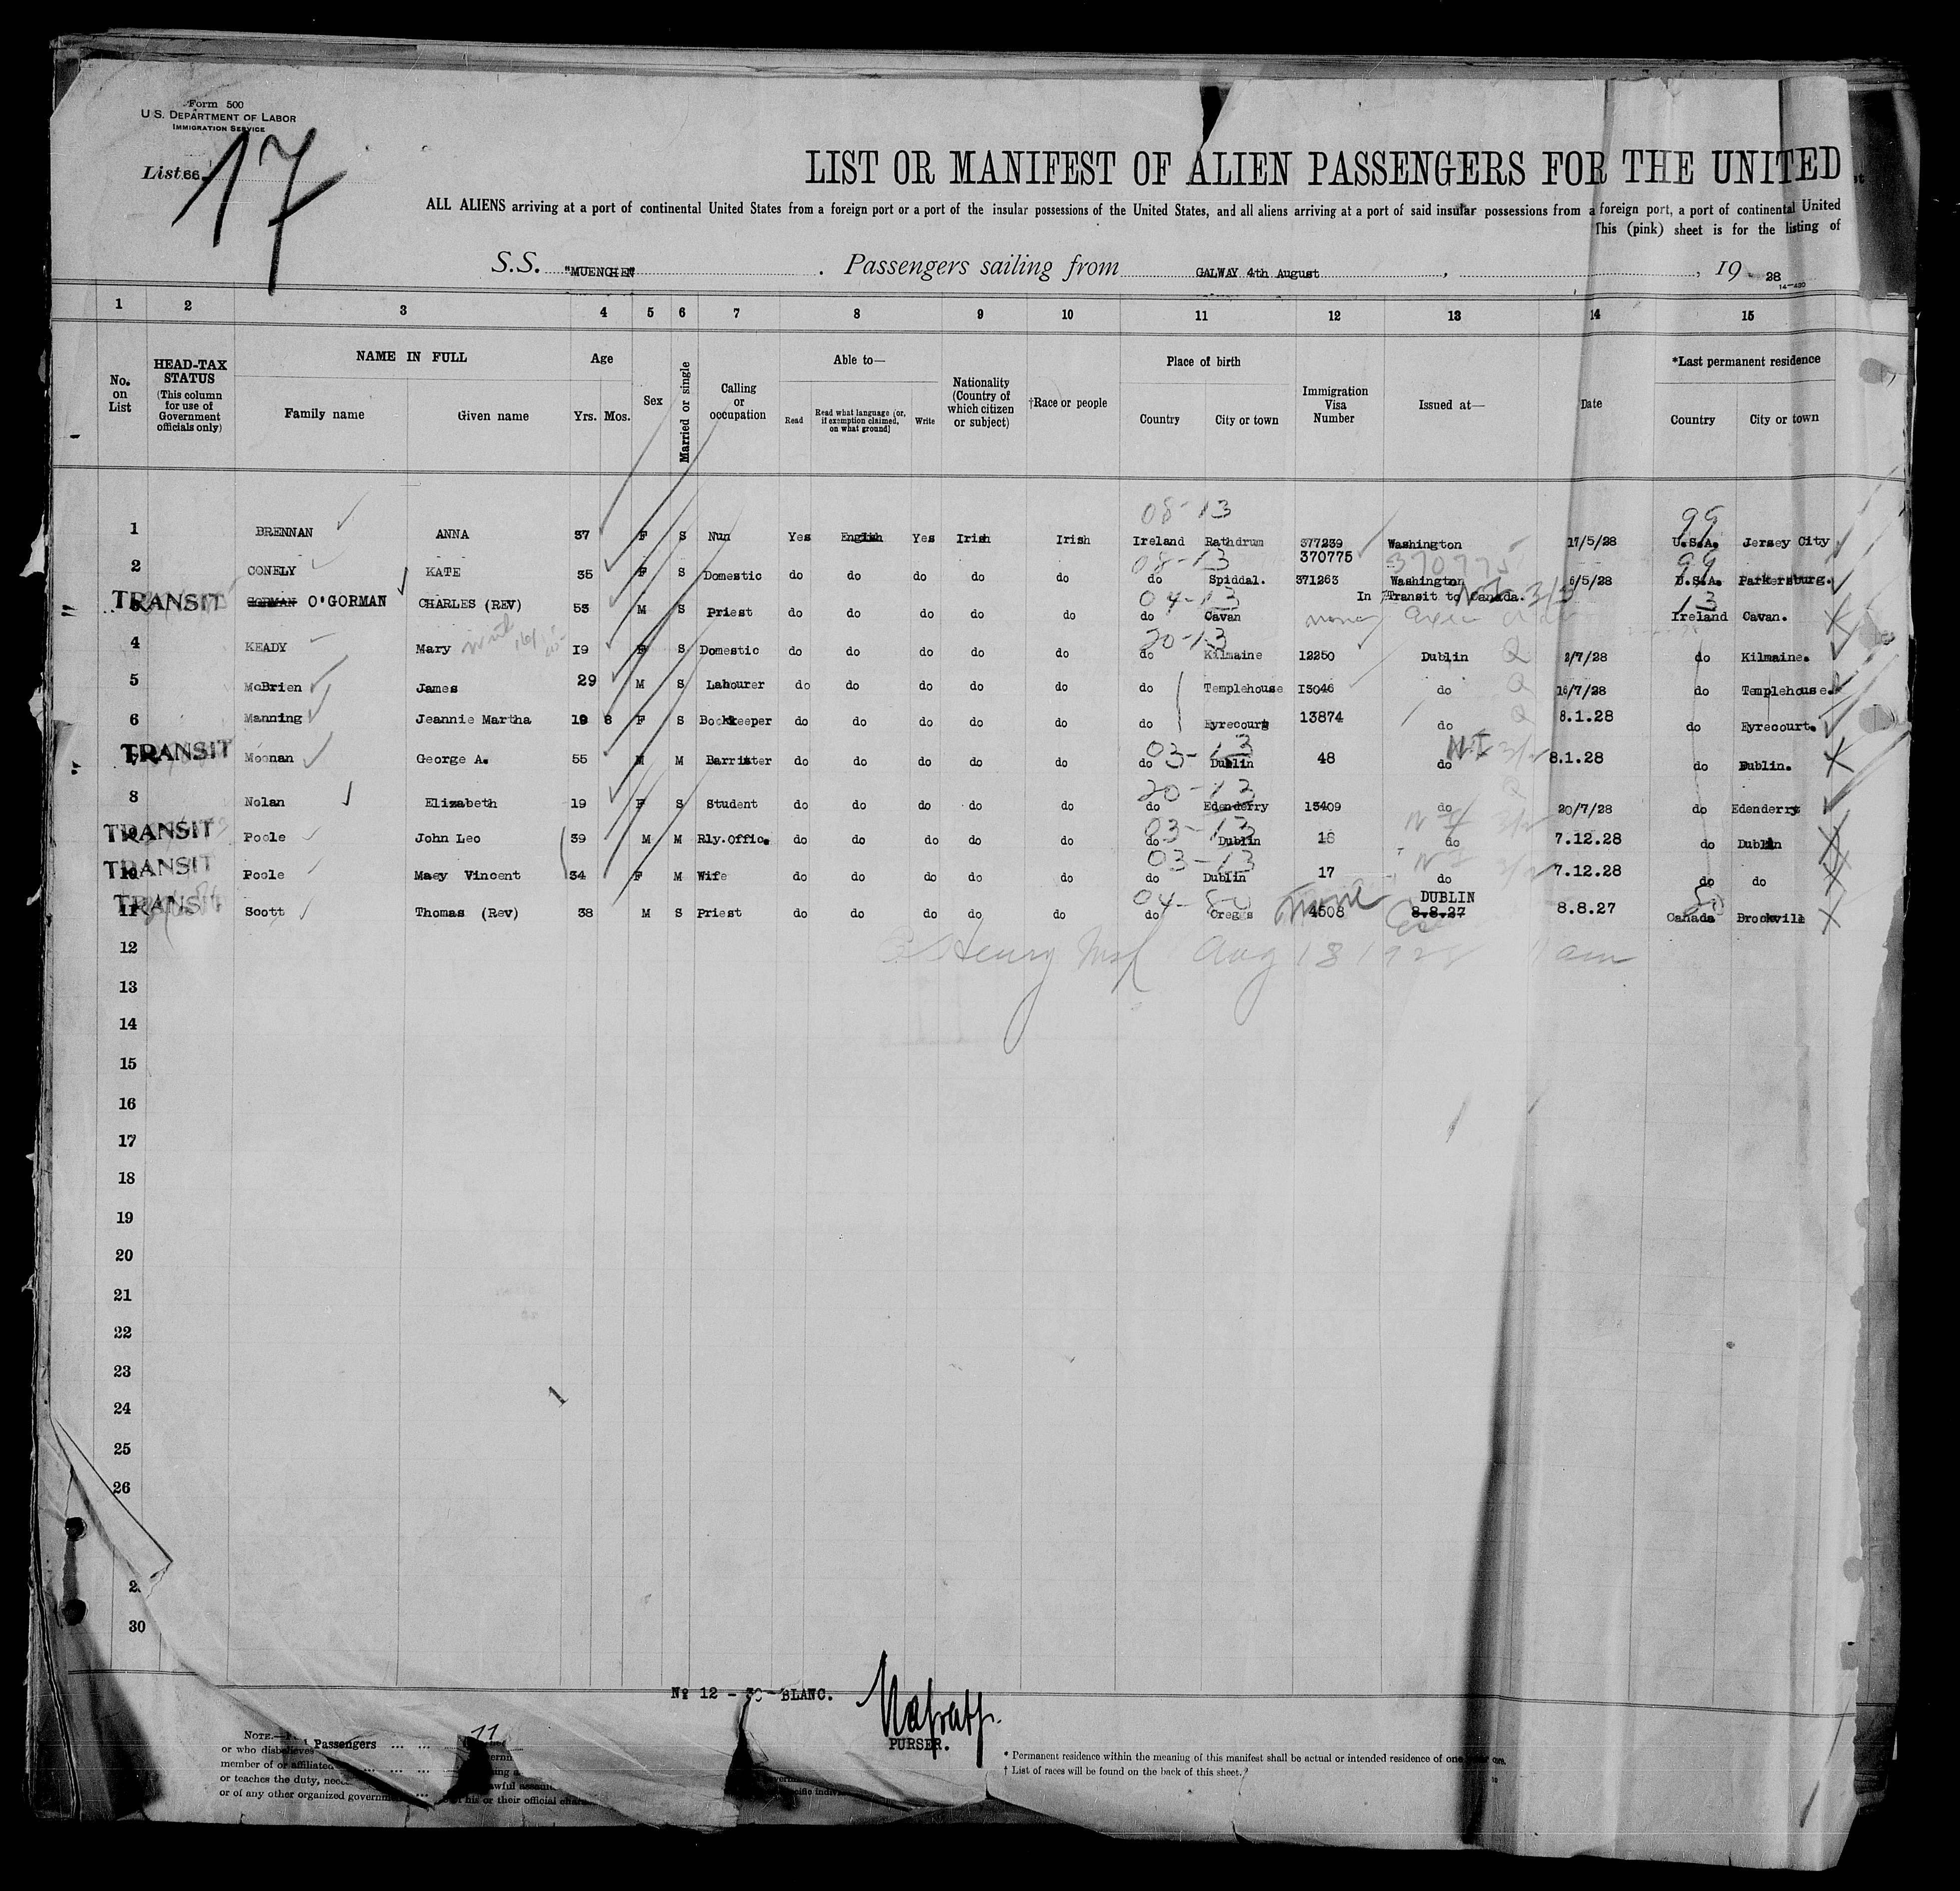 Form 500
U. S. DEPARTMENT OF LABOR
IMMIGRATION SERVICE
List 66.
17
LIST OR MANIFEST OF ALIEN PASSENGERS FOR THE UNITED
ALL ALIENS arriving at a port of continental United States from a foreign port or a port of the insular possessions of the United States, and all aliens arriving at a port of said insular possessions from a foreign port, a port of continental United
This (pink) sheet is for the listing of
S.S. "MUENCHEN" . Passengers sailing from GALWAY 4th August , , 19 28
14-430
1 2 3 4 5 6 7 8 9 10 11 12 13 14 15
No. on List
HEAD-TAX STATUS (This column for use of Government officials only)
NAME IN FULL
Family name Given name
Age
Yrs. Mos.
Sex
Married or single
Calling or occupation
Able to—
Read Read what language (or, if exemption claimed, on what ground) Write
Nationality (Country of which citizen or subject)
†Race or people
Place of birth
Country City or town
Immigration Visa Number
Issued at—
Date
*Last permanent residence
Country City or town
08-13 99
1 BRENNAN ANNA 37 F S Nun Yes English Yes Irish Irish Ireland Rathdrum 377239 Washington 17/5/28 U.S.A. Jersey City
08-13 370775 370775 99
2 CONELY KATE 35 F S Domestic do do do do do do Spiddal. 371263 Washington 6/5/28 U.S.A. Parkersburg.
04-13 In Transit to Canada. 13
TRANSIT GORMAN O'GORMAN CHARLES (REV) 53 M S Priest do do do do do do Cavan Ireland Cavan.
20-13
4 KEADY Mary 19 F S Domestic do do do do do do Kilmaine 12250 Dublin Q 2/7/28 do Kilmaine.
5 McBrien James 29 M S Labourer do do do do do do Templehouse 13046 do Q 16/7/28 do Templehouse.
6 Manning Jeannie Martha 19 8 F S Bookkeeper do do do do do do Eyrecourt 13874 do Q 8.1.28 do Eyrecourt.
03-13
TRANSIT Moonan George A. 55 M M Barrister do do do do do do Dublin 48 do 8.1.28 do Dublin.
20-13
8 Nolan Elizabeth 19 F S Student do do do do do do Edenderry 13409 do Q 20/7/28 do Edenderry
03-13
TRANSIT Poole John Leo 39 M M Rly.Offic. do do do do do do Dublin do 7.12.28 do Dublin
03-13
TRANSIT Poole Vincent 34 F M Wife do do do do do do Dublin 17 do 7.12.28 do do
04-80 DUBLIN
TRANSIT 11 Scott Thomas (Rev) 38 M S Priest do do do do do do Creggs 4508 8.8.27 8.8.27 Canada Brockville
12 Henry Aug 13 1928 11 am
13
14
15
16
17
18
19
20
21
22
23
24
25
26
30
Nº 12 - 30 - BLANC.
PURSER.
Passengers ... ... 11
NOTE.—
or who disbelieves
member of or affiliated
or teaches the duty,
or of any other organized
his or their official
* Permanent residence within the meaning of this manifest shall be actual or intended residence of one
† List of races will be found on the back of this sheet.